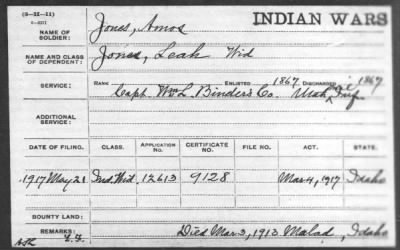 (3-M-11)
INDIAN WARS
NAME OF SOLDIER: Jones, Amos
NAME AND CLASS OF DEPENDENT: Jones, Leah Wid
SERVICE: RANK ENLISTED 1867 DISCHARGED 1867
Capt. Wm L. Binder's Co. Utah Inf
ADDITIONAL SERVICE:
DATE OF FILING. CLASS. APPLICATION No. CERTIFICATE No. FILE NO. ACT. STATE.
1917 May 21 Ind. Wid. 12613 9128 Mar 4, 1917 Idaho
BOUNTY LAND:
REMARKS: Died Mar 3, 1913 Malad, Idaho